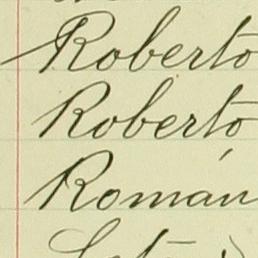 Roberto
Roberto
Román